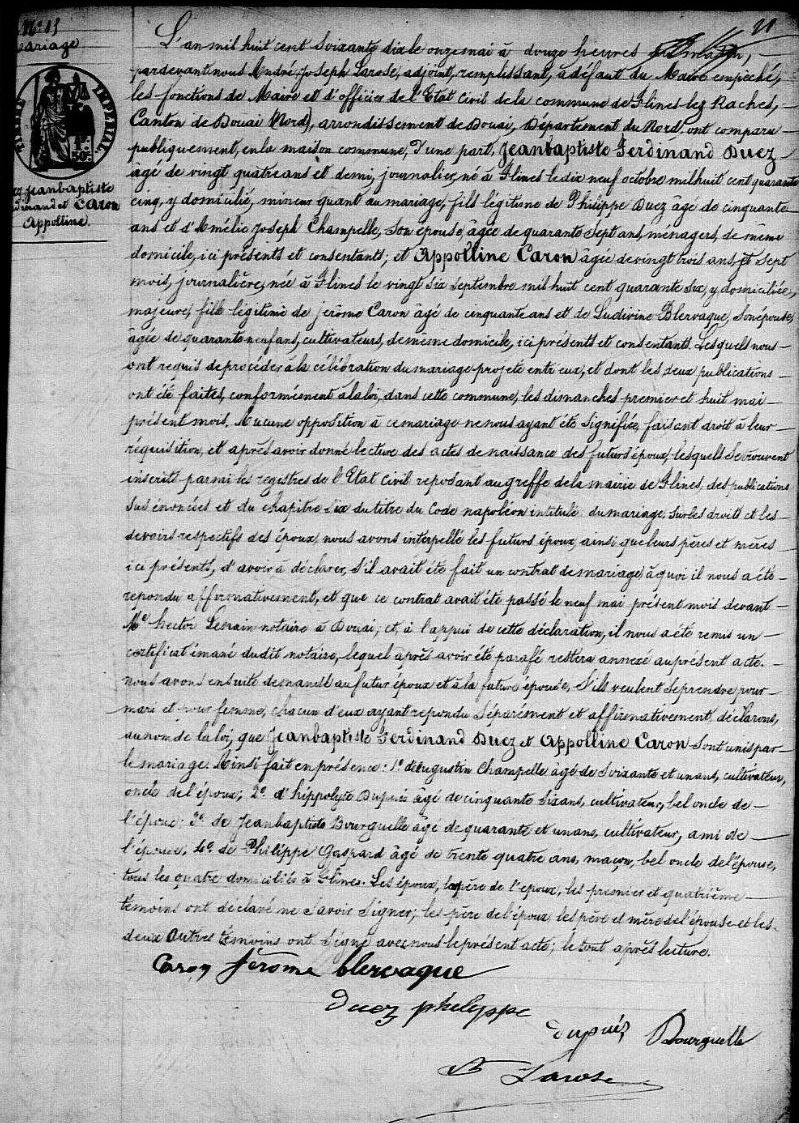 21
N° 15
Mariage
50c
Duez Jeanbaptiste
Ferdinand et Caron
Appolline.
L'an mil huit cent Soixante dix le onze mai à douze heures
pardevant nous André Joseph Larose, adjoint, remplissant, à défaut du Maire empêché,
les fonctions de Maire et d'officier de l'Etat Civil de la commune de Flines-lez Raches,
Canton de Douai (Nord), arrondissement de Douai, Département du Nord ont comparu
publiquement, en la maison commune, D'une part, Jeanbaptiste Ferdinand Duez
âgé de vingt quatre ans et demi, journalier, né à Flines le dix neuf octobre mil huit cent quarante
cinq, y domicilié, mineur quant au mariage, fils légitime de Philippe Duez âgé de cinquante
ans et d'Amélie Joseph Champelle, son épouse, âgée de quarante sept ans, ménagers, de même
domicile, ici présents et consentants; et Appolline Caron âgée de vingt trois ans et sept
mois, journalière, née à Flines le vingt six septembre mil huit cent quarante six, y domiciliée,
majeure, fille légitime de jérôme Caron âgé de cinquante ans et de Ludivine Blervaque, son épouse,
âgée de quarante neuf ans, cultivateurs, de même domicile, ici présents et consentants. Lesquels nous
ont requis de procéder à la célébration du mariage projeté entre eux, et dont les deux publications
ont été faites, conformément à la loi, dans cette commune, les dimanches premier et huit mai
présent mois. Aucune opposition à ce mariage ne nous ayant été signifiée, faisant droit à leur
réquisition, et après avoir donné lecture des actes de naissance des futurs époux, lesquels se trouvent
inscrits parmi les registres de l'Etat Civil reposant au greffe de la mairie de Flines, des publications
sus énoncées et du chapitre six du titre du Code napoléon intitulé du mariage, sur les droits et les
devoirs respectifs des époux, nous avons interpellé les futurs époux, ainsi que leurs pères et mères
ici présents, d'avoir à déclarer, s'il avait été fait un contrat de mariage, à quoi il nous a été
répondu affirmativement, et que ce contrat avait été passé le neuf mai présent mois devant
Me hector notaire à Douai; et, à l'appui de cette déclaration, il nous a été remis un
certificat émané dudit notaire, lequel après avoir été parafé restera annexé au présent acte.
nous avons ensuite demandé au futur époux et à la future épouse, s'ils veulent se prendre pour
mari et pour femme, chacun d'eux ayant répondu séparément et affirmativement, déclarons,
au nom de la loi, que Jeanbaptiste Ferdinand Duez et Appolline Caron sont unis par
le mariage. Ainsi fait en présence: 1° d'Augustin Champelle âgé de soixante et un ans, cultivateur,
oncle de l'époux; 2° d'hippolyte Dupuis âgé de cinquante six ans, cultivateur, bel oncle de
l'époux; 3° de Jeanbaptiste Bourguelle âgé de quarante et un ans, cultivateur, ami de
l'épouse, 4° de Philippe Gaspard âgé de trente quatre ans, maçon, bel oncle de l'épouse,
tous les quatre domiciliés à Flines. Les époux, la mère de l'époux, les premier et quatrième
témoins ont déclaré ne savoir signer; les père de l'époux, les père et mère de l'épouse et les
deux autres témoins ont signé avec nous le présent acte; le tout après lecture.
Caron jérôme blervaque
Duez philippe
Dupuis Bourguelle
Larose